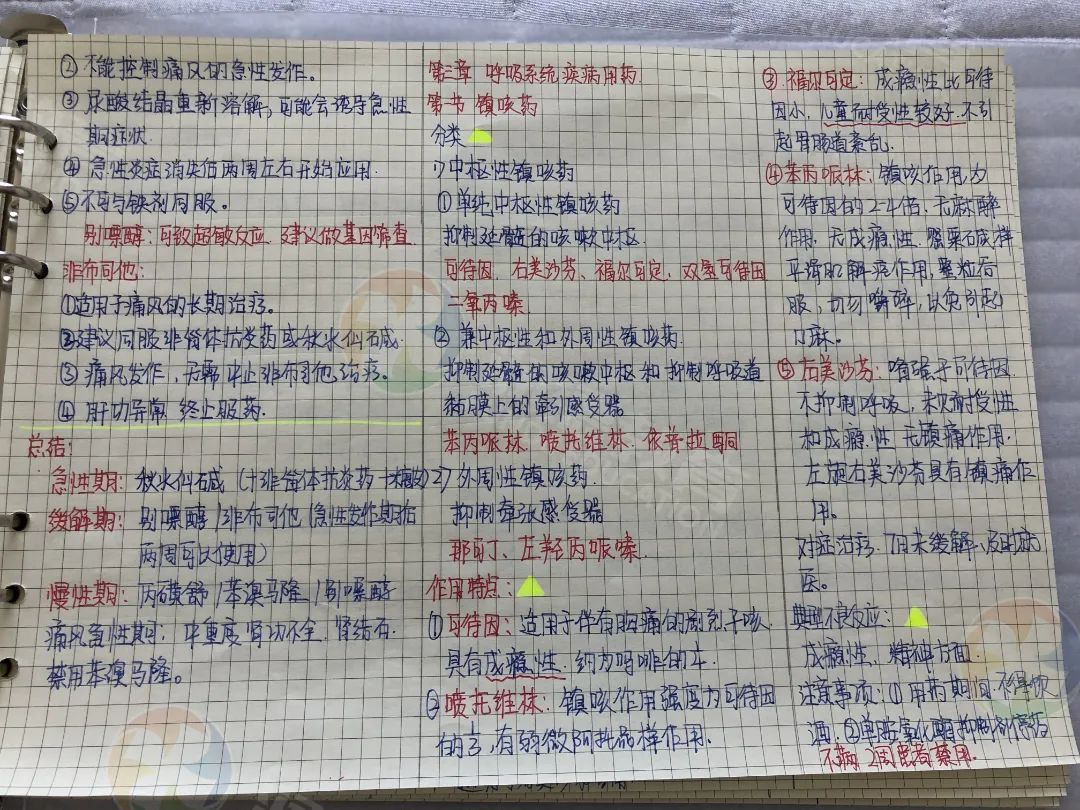 ② 不能控制痛风的急性发作。
③ 尿酸结晶重新溶解,可能会诱导急性
期症状.
④ 急性炎症消失后两周左右开始应用.
⑤不可与铁剂同服。
别嘌醇:可致超敏反应.建议做基因筛查
非布司他:
①适用于痛风的长期治疗。
②建议同服非甾体抗炎药或秋水仙碱.
③ 痛风发作,无需中止非布司他治疗。
④ 肝功异常 终止服药.
总结:
急性期:秋水仙碱(+非甾体抗炎药+
缓解期:别嘌醇/非布司他(急性发作期后
两周可以使用)
慢性期:丙磺舒/苯溴马隆/别嘌醇
痛风急性期、中重度肾功不全.肾结石.
禁用苯溴马隆。
第三章 呼吸系统疾病用药
第一节 镇咳药
分类
1)中枢性镇咳药
①单纯中枢性镇咳药
抑制延髓的咳嗽中枢.
可待因、右美沙芬、福尔可定、双氢可待因
二氧丙嗪.
② 兼中枢性和外周性镇咳药.
抑制延髓的咳嗽中枢和抑制呼吸道
黏膜上的牵引感受器
苯丙哌林.喷托维林.依普拉酮
2)外周性镇咳药.
抑制牵张感受器
那可丁、左羟丙哌嗪.
作用特点:
①可待因:适用于伴有胸痛的剧烈干咳.
具有成瘾性.约为吗啡的
②喷托维林:镇咳作用强度为可待因
的1/3,有弱微阿托品样作用.
③福尔可定:成瘾性比可待
因小,儿童耐受性较好.不引
起胃肠道紊乱.
④苯丙哌林:镇咳作用为
可待因的2-4倍.无麻醉
作用.无成瘾性.罂粟碱样
平滑肌解痉作用,整粒吞
服,切勿嚼碎,以免引起
口麻。
⑤右美沙芬:略强于可待因
不抑制呼吸,未见耐受性
和成瘾性 无镇痛作用,
左旋右美沙芬具有镇痛作
用。
对症治疗.7日未缓解、及时就
医。
典型不良反应:
成瘾性、精神方面.
注意事项:①用药期间不得饮
酒.②单胺氧化酶抑制剂停药
不满2周患者禁用.